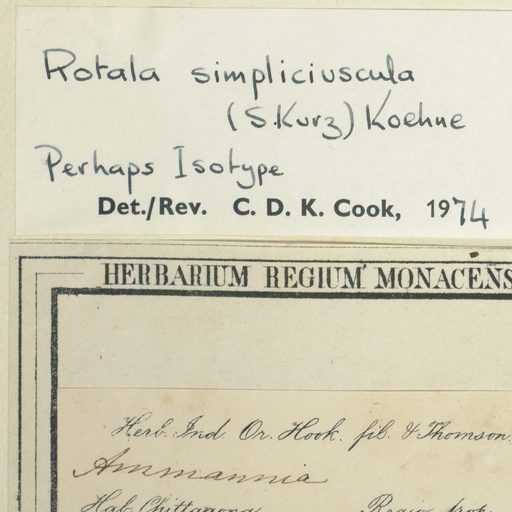 Rotala simpliciuscula
(S.Kurz) Koehne
Perhaps Isotype
Det./Rev. C. D. K. Cook, 1974
HERBARIUM REGIUM MONACENS
Herb. Ind. Or. Hook. fil. & Thomson.
Ammannia
Hab. Chittagong Regio trop.